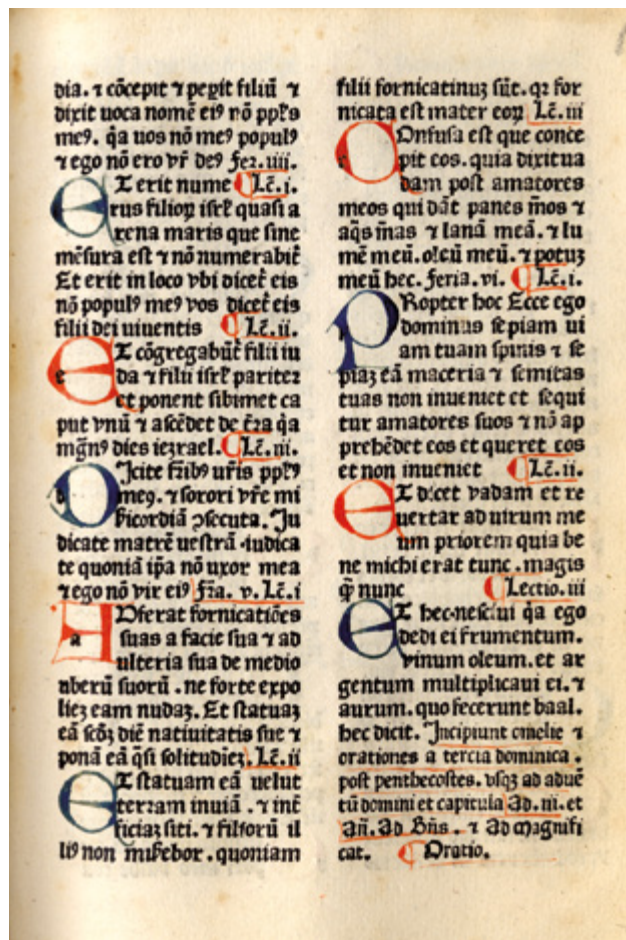 dia. ⁊ cōcepit ⁊ pepit filiū ⁊
dixit uoca nomē eiꝰ nō ppl's
meꝰ. q̄a uos nō meꝰ populꝰ
⁊ ego nō ero vr̄ deꝰ fer. iiii.
ET erit nume Lc̄. i.
rus filioꝝ isrl' quasi a
rena maris que sine
mēsura est ⁊ nō numerabit᷑
Et erit in loco vbi dicet᷑ eis
nō populꝰ meꝰ vos dicet᷑ eis
filii dei uiuentis Lc̄. ii.
ET cōgregabūt᷑ filii iu
da ⁊ filii isrl' pariter
et ponent sibimet ca
put vnū ⁊ ascēdet de t̄ra q̄a
mḡnꝰ dies iezrael. Lc̄. iii.
DIcite fr̄ibꝰ ur̄is ppl'ꝰ
meꝰ. ⁊ sorori vr̄e mi
sericordiā ꝯsecuta. Iu
dicate matrē uestrā iudica
te quoniā ip̄a nō uxor mea
⁊ ego nō vir eiꝰ fr̄a. v. Lc̄. i
AVferat fornicatiōes
suas a facie sua ⁊ ad
ulteria sua de medio
uberū suorū. ne forte expo
lieꝫ eam nudaꝫ. Et statuaꝫ
eā scd̄ꝫ diē natiuitatis sue ⁊
ponā eā q̄si solitudieꝫ. Lc̄. ii
ET statuam eā uelut
terram inuiā. ⁊ int̄
ficiaꝫ siti. ⁊ filiorū il
liꝰ non miserebor. quoniam
filii fornicatinuꝫ sūt. qꝛ for
nicata est mater eoꝝ Lc̄. iii
COnfusa est que conce
pit eos. quia dixit ua
dam post amatores
meos qui dāt panes m̄os ⁊
aq̄s m̄as ⁊ lanā meā. ⁊ lu
mē meū. oleū meū. ⁊ potuꝫ
meū hec. feria. vi. Lc̄. i.
PRopter hoc Ecce ego
dominus sepiam ui
am tuam spinis ⁊ se
piaꝫ eā maceria ⁊ semitas
tuas non inueniet et sequi
tur amatores suos ⁊ nō ap
prehēdet eos et queret eos
et non inueniet Lc̄. ii.
ET dicet vadam et re
uertar ad uirum me
um priorem quia be
ne michi erat tunc. magis
q̄ nunc Lectio. iii
ET hec nesciui q̄a ego
dedi ei frumentum.
vinum oleum. et ar
gentum multiplicaui ei. ⁊
aurum. quo fecerunt baal.
hec dicit. Incipiunt omelie ⁊
orationes a tercia dominica.
post penthecostes. vsqꝫ ad aduē
tū domini et capitula Ad. iii. et
Añ. Ad Bn̄s. ⁊ Ad magnifi
cat. Oratio.